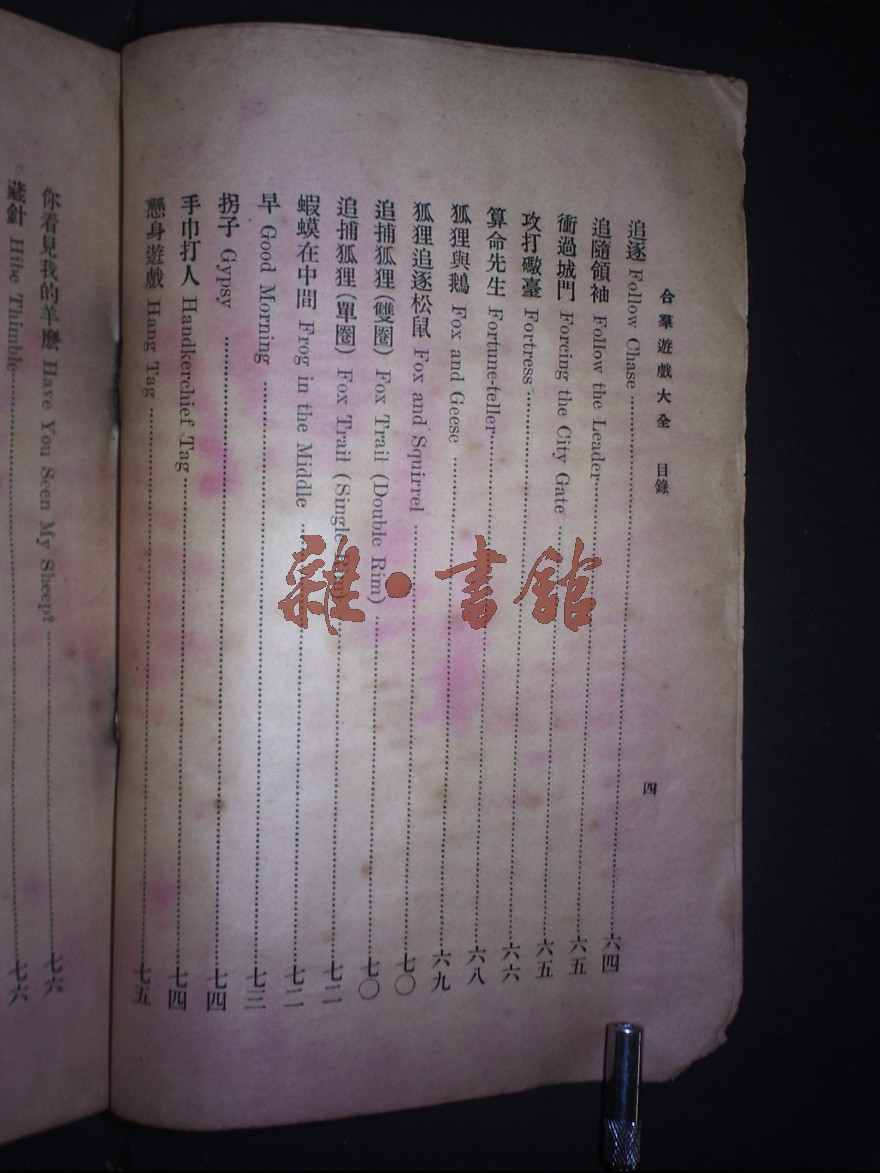 合羣遊戲大全　目錄
四
追逐 Follow Chase……六四
追隨領袖 Follow the Leader……六五
衝過城門 Forcing the City Gate……六五
攻打礮臺 Fortress……六六
算命先生 Fortune-teller……六八
狐狸與鵝 Fox and Geese……六九
狐狸追逐松鼠 Fox and Squirrel……七〇
追捕狐狸(雙圈) Fox Trail (Double Rim)……七〇
追捕狐狸(單圈) Fox Trail (Single Rim)……七二
蝦蟆在中間 Frog in the Middle……七二
早 Good Morning……七三
拐子 Gypsy……七四
手巾打人 Handkerchief Tag……七四
懸身遊戲 Hang Tag……七五
你看見我的羊麽 Have You Seen My Sheep?……七六
藏針 Hibe Thimble……七六
雜·書館